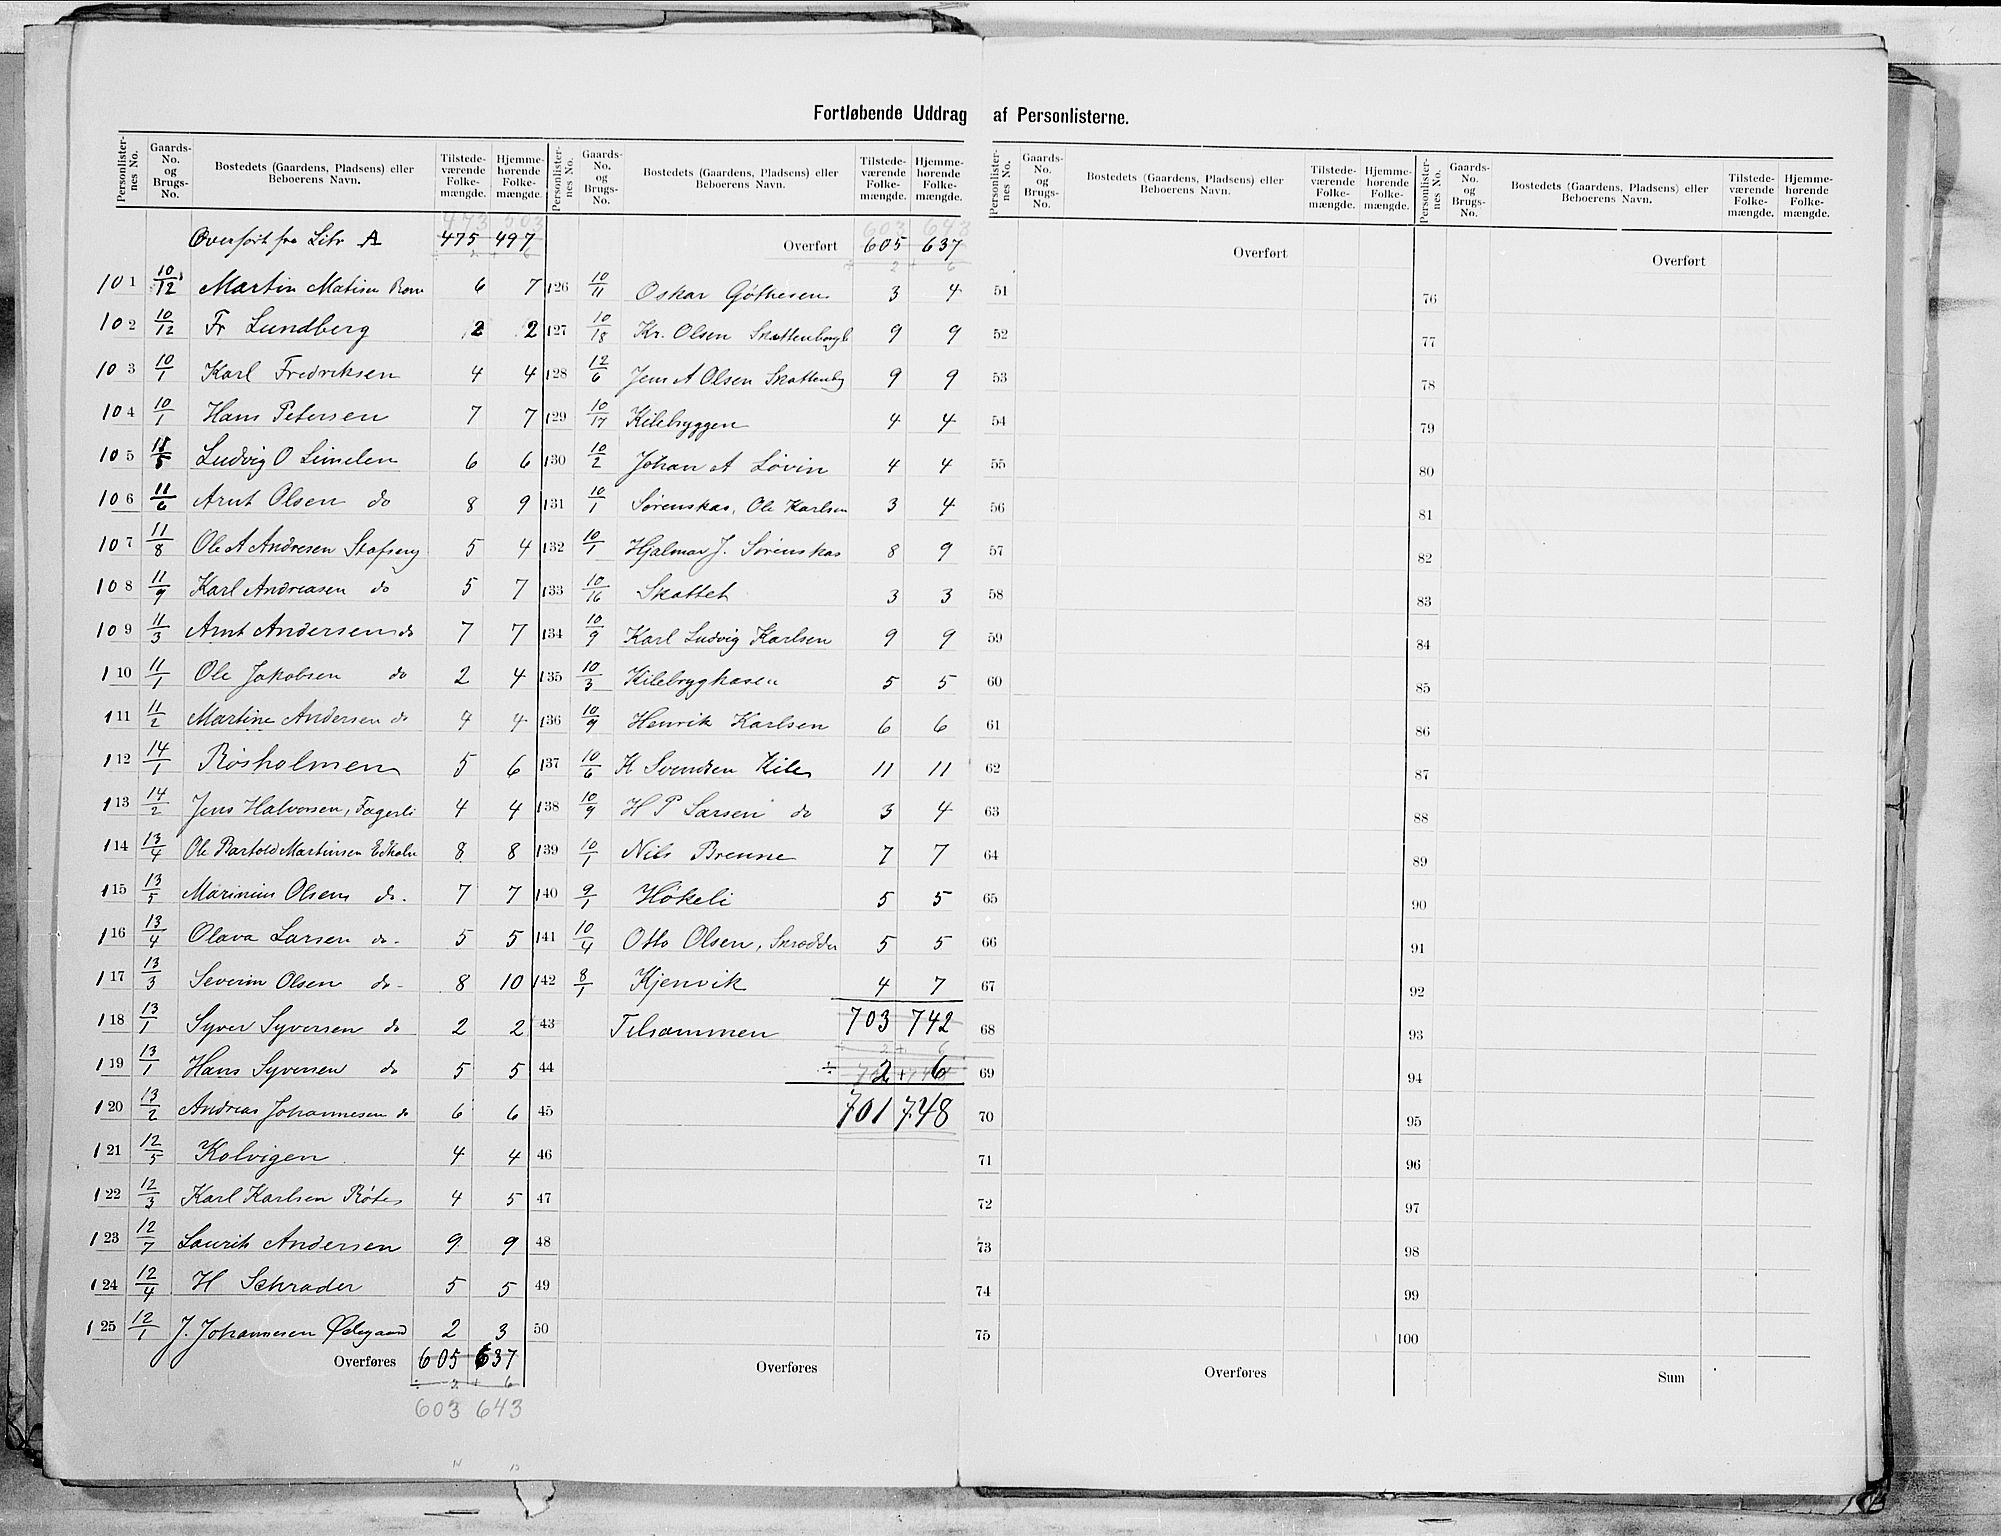 Fortløbende Uddrag af Personlisterne.
Personlister-nes No. Gaards-No. og Brugs-No. Bostedets (Gaardens, Pladsens) eller Beboerens Navn. Tilstede-værende Folke-mængde. Hjemme-hørende Folke-mængde.
473 503
Overført fra Litr A 475 497
÷ 2 + 6
101 10/12 Martin Matisen 6 7
102 10/12 Fr Lundberg 2 2
103 10/1 Karl Fredriksen 4 4
104 10/1 Hans Petersen 7 7
105 11/5 Ludvig O Limelen 6 6
106 11/6 Arnt Olsen do 8 9
107 11/8 Ole A Andresen 5 4
108 11/9 Karl Andreasen do 5 7
109 11/3 Arnt Andersen do 7 7
110 11/1 Ole Jakobsen do 2 4
111 11/2 Martine Andersen do 4 4
112 14/1 Røsholmen 5 6
113 14/2 Jens Halvorsen, Fagerli 4 4
114 13/4 Ole Bartold Martinsen Ekholt 8 8
115 13/5 Marinius Olsen do. 7 7
116 13/4 Olava Larsen do. 5 5
117 13/3 Severin Olsen do 8 10
118 13/1 Syver Syversen do 2 2
119 13/1 Hans Syversen do 5 5
120 13/2 Andreas Johannesen do 6 6
121 12/5 Kolvigen 4 4
122 12/3 Karl Karlsen Røte 4 5
123 12/7 Laurits Andersen 9 9
124 12/4 H Schrader 5 5
125 12/1 J. Johannesen Ødegaard 2 3
Overføres 605 637
÷ 2 + 6
603 643
Personlister-nes No. Gaards-No. og Brugs-No. Bostedets (Gaardens, Pladsens) eller Beboerens Navn. Tilstede-værende Folke-mængde. Hjemme-hørende Folke-mængde.
603 643
Overført 605 637
÷ 2 + 6
126 10/11 Oskar Gøthesen 3 4
127 10/18 Kr. Olsen 9 9
128 12/6 Jens A Olsen 9 9
129 10/17 Kilebryggen 4 4
130 10/2 Johan A Løvin 4 4
131 10/1 Sørenskas, Ole Karlsen 3 4
132 10/1 Hjalmar J. Sørenskas 8 9
133 10/16 Skattet 3 3
134 10/9 Karl Ludvig Karlsen 9 9
135 10/3 Kilebryghasen 5 5
136 10/9 Henrik Karlsen 6 6
137 10/6 K Svendsen Kile 11 11
138 10/9 H P Larsen do 3 4
139 10/1 Nils Brenne 7 7
140 9/1 Høkeli 5 5
141 10/4 Otto Olsen, Skrædder 5 5
142 8/1 Kjenvik 4 7
43 Tilsammen 703 742
÷ 2 + 6
44 ÷ 2 + 6
45 701 748
46
47
48
49
50
Overføres
Personlister-nes No. Gaards-No. og Brugs-No. Bostedets (Gaardens, Pladsens) eller Beboerens Navn. Tilstede-værende Folke-mængde. Hjemme-hørende Folke-mængde.
Overført
51
52
53
54
55
56
57
58
59
60
61
62
63
64
65
66
67
68
69
70
71
72
73
74
75
Overføres
Personlister-nes No. Gaards-No. og Brugs-No. Bostedets (Gaardens, Pladsens) eller Beboerens Navn. Tilstede-værende Folke-mængde. Hjemme-hørende Folke-mængde.
Overført
76
77
78
79
80
81
82
83
84
85
86
87
88
89
90
91
92
93
94
95
96
97
98
99
100
Sum